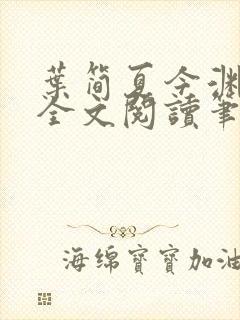 葉简夏令渊
全文閱讀筆
海绵寶寶加油